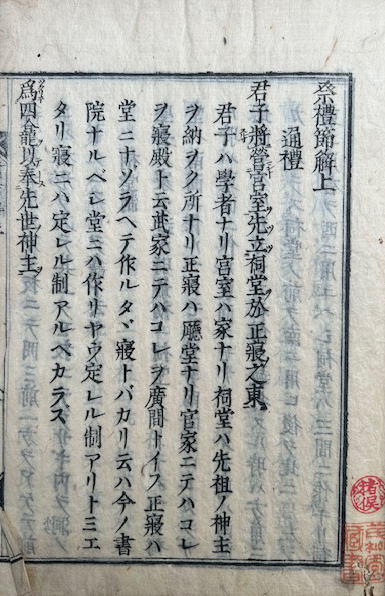 祭禮節解上
通禮
君子將營宮室先立祠堂於正寢之東
君子ハ學者ナリ宮室ハ家ナリ祠堂ハ先祖ノ神主
ヲ納ヲク所ナリ正寢ハ廳堂ナリ官家ニテハコレ
ヲ寢殿ト云武家ニテハコレヲ廣間トイス正寢ハ
堂ニナソラヘテ作ルタヾ寢トバカリ云ハ今ノ書
院ナルベシ堂ニハ作リヤウ定レル制アリトミエ
タリ寢ニハ定レル制アルベカラス
爲四龕以奉先世神主